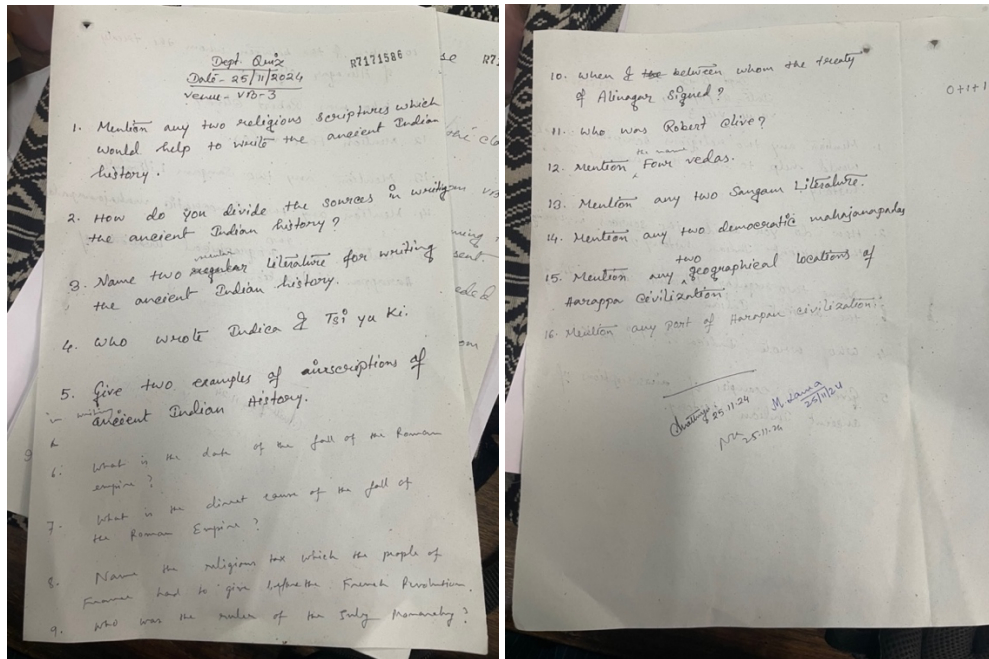 Dept. Quiz
R7171586
Date - 25/11/2024
venue - VB-3
1. Mention any two religious scriptures which
would help to write the ancient Indian
history.
2. How do you divide the sources in writing
the ancient Indian history?
3. Name two secular Literature for writing
the ancient Indian history.
4. Who wrote Indica & Tsi yu Ki.
5. Give two examples of inscriptions of
in writing
ancient Indian History.
6. What is the date of the fall of the Roman
empire?
7. What is the direct cause of the fall of
the Roman Empire?
8. Name the religious tax which the people of
France had to give before the French Revolution.
9. Who was the ruler of the July Monarchy?
se R7
10. When & between whom the treaty
of Alinagar signed?
0+1+1
11. Who was Robert Clive?
the name
12. Mention Four vedas.
13. Mention any two Sangam Literature.
14. Mention any two democratic mahajanapadas
two
15. Mention any geographical locations of
Harappa Civilization
16. Mention any part of Harapan civilization.
25.11.24
M Lama
25/11/24
25.11.24